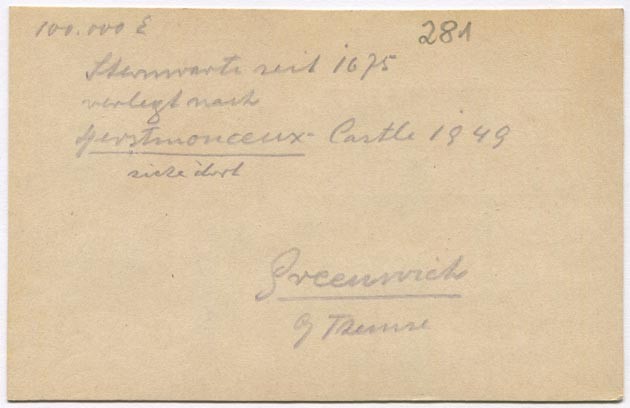 100.000 E
281
Sternwarte seit 1675
verlegt nach
Herstmonceux-Castle 1949
siehe dort
Greenwich
Themse